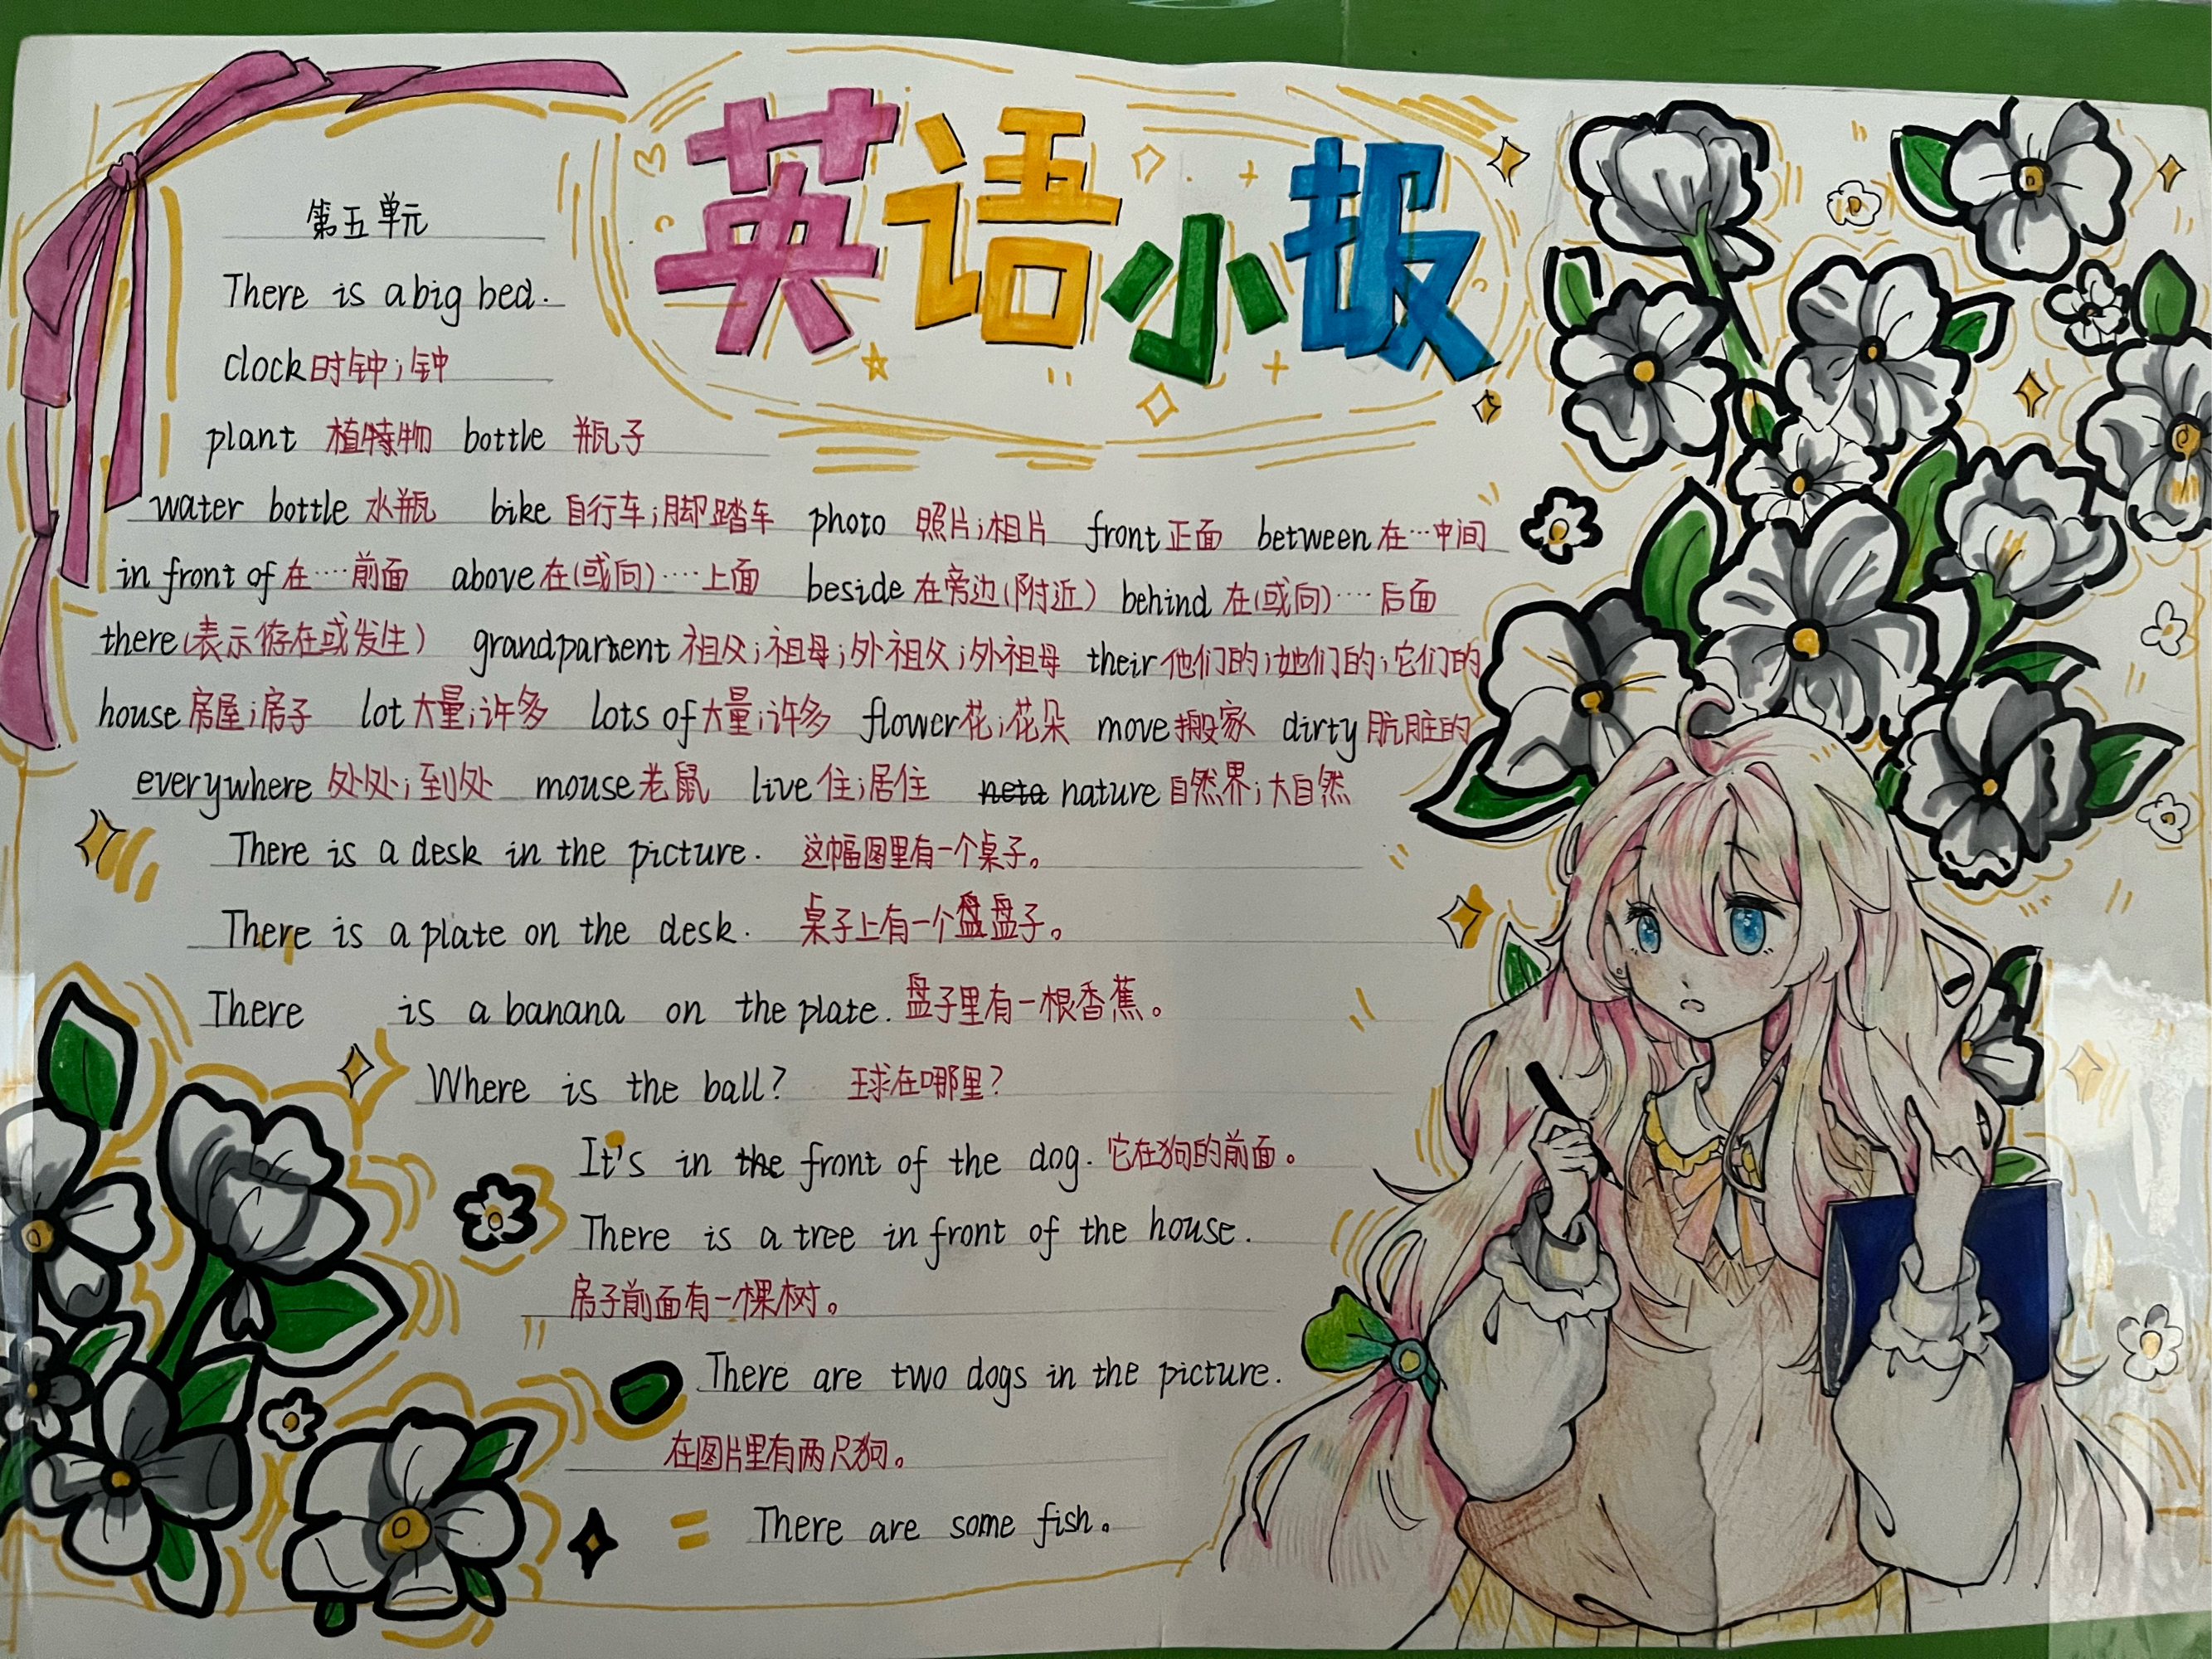 英语小报
第五单元
There is a big bed.
clock 时钟；钟
plant 植物 bottle 瓶子
water bottle 水瓶 bike 自行车；脚踏车 photo 照片；相片 front 正面 between 在…中间
in front of 在····前面 above 在(或向)····上面 beside 在旁边(附近) behind 在(或向)····后面
there (表示存在或发生) grandpartent 祖父；祖母；外祖父；外祖母 their 他们的；她们的；它们的
house 房屋；房子 lot 大量；许多 lots of 大量；许多 flower 花；花朵 move 搬家 dirty 肮脏的
everywhere 处处；到处 mouse 老鼠 live 住；居住 nature 自然界；大自然
There is a desk in the picture. 这幅图里有一个桌子。
There is a plate on the desk. 桌子上有一个盘盘子。
There is a banana on the plate. 盘子里有一根香蕉。
Where is the ball? 球在哪里？
It's in the front of the dog. 它在狗的前面。
There is a tree in front of the house.
房子前面有一棵树。
There are two dogs in the picture.
在图片里有两只狗。
There are some fish。